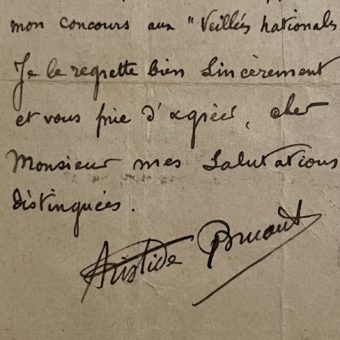 mon concours aux "Veillés nationals
Je le regrette bien sincèrement
et vous prie d'agréer, cher
Monsieur mes salutations
distinguées.
Aristide Bruant